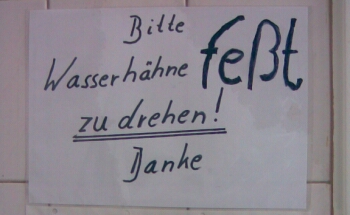 Bitte
Wasserhähne feßt
zu drehen!
Danke